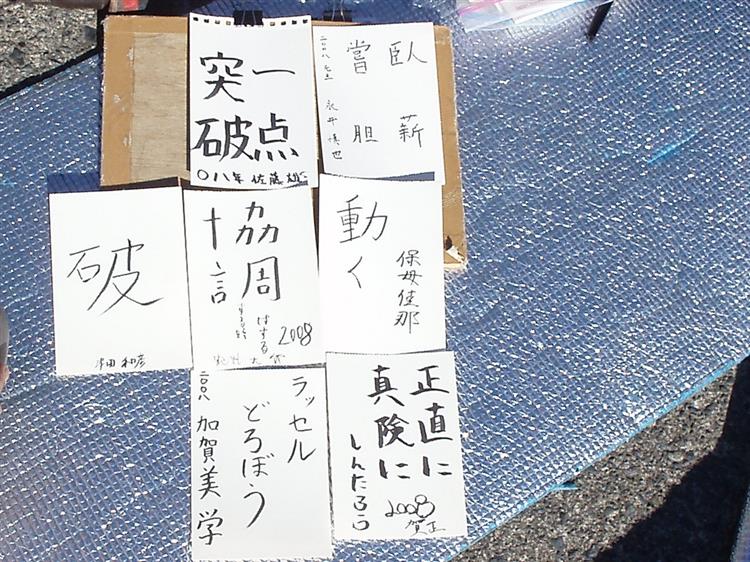 一点
突破
〇八年 佐藤
臥薪
嘗胆
二〇〇八 元旦
永井慎也
破
和彦
協調
2008
動く
保母佳那
ラッセル
どろぼう
二〇〇八 加賀美 学
正直に
真険に
しんたろう
2008
賀正